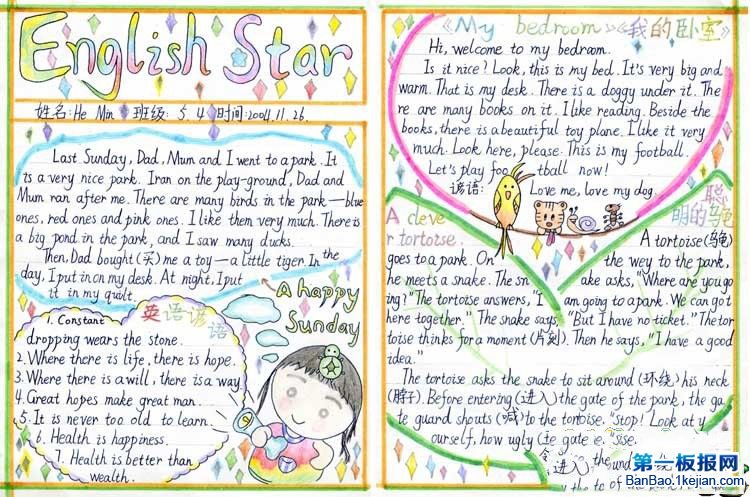 English Star
姓名:He Min 班级: 5.4 时间:2004.11.26.
Last Sunday, Dad, Mum and I went to a park. It
is a very nice park. I ran on the play-ground, Dad and
Mum ran after me. There are many birds in the park—blue
ones, red ones and pink ones. I like them very much. There is
a big pond in the park, and I saw many ducks.
Then, Dad bought(买) me a toy—a little tiger. In the
day, I put in on my desk. At night, I put
it in my quilt.
A happy
Sunday
英语谚语
1. Constant
dropping wears the stone.
2. Where there is life, there is hope.
3. Where there is a will, there is a way
4. Great hopes make great man.
5. It is never too old to learn.
6. Health is happiness.
7. Health is better than
wealth.
《My bedroom》《我的卧室》
Hi, welcome to my bedroom.
Is it nice? Look, this is my bed. It's very big and
warm. That is my desk. There is a doggy under it. The
re are many books on it. I like reading. Beside the
books, there is a beautiful toy plane. I like it very
much. Look here, please. This is my football.
Let's play foo tball now!
谚语: Love me, love my dog.
A cleve
r tortoise.
聪
明的乌龟
A tortoise(乌龟)
goes to a park. On the wey to the park,
he meets a snake. The sn ake asks, "Where are you go
ing?" The tortoise answers, "I am going to a park. We can got
here together." The snake says, "But I have no ticket." The tor
toise thinks for a moment (片刻). Then he says, "I have a good
idea."
The tortoise asks the snake to sit around (环绕) his neck
(脖子). Before entering (进入) the gate of the park, the ga
te guard shouts (喊) to the tortoise. "Stop! Look at y
ourself, how ugly
进入
第一板报网
BanBao.1kejian.com